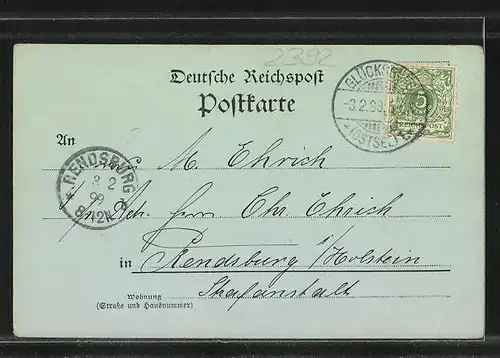 2392
Deutsche Reichspost
Postkarte
GLÜCKSBURG
-3.2.99
*(OSTSEE)*
5
REICHSPOST
An
M. Ehrich
RENDSBURG
3 2
99
8-12N.
Adr. Herrn Chr. Ehrich
in Rendsburg i/Holstein
Strafanstalt
Wohnung
(Straße und Hausnummer)